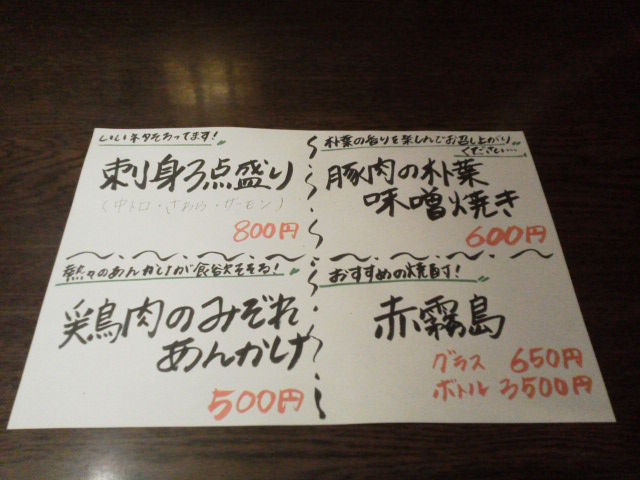 いいネタそろってます!
刺身3点盛り
(中トロ・さわら・サーモン)
800円
朴葉の香りを楽しんでお召し上がり
ください…
豚肉の朴葉
味噌焼き
600円
熱々のあんかけが食欲そそる!
鶏肉のみぞれ
あんかけ
500円
おすすめの焼酎!
赤霧島
グラス 650円
ボトル 3500円